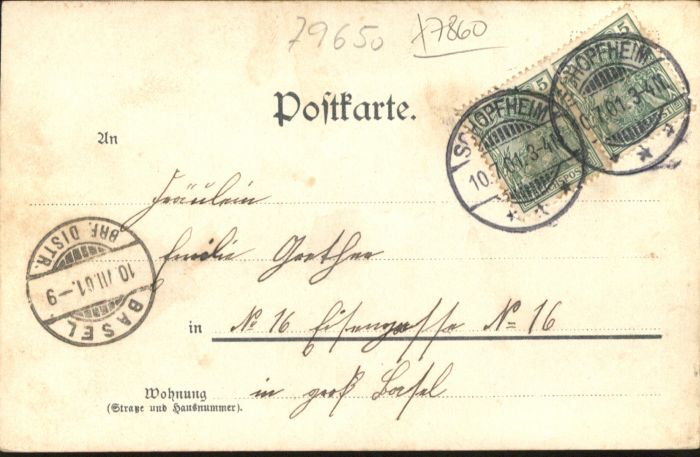 79650 X7860
5 5
Postkarte.
SCHOPFHEIM 10.7.01.3-4N.
SCHOPFHEIM 10.7.01.3-4N.
REICHSPOST
An
Fräulein
Emilie Grether
BASEL 10.VII.01.-9 BRF. DISTR.
in No 16 Eisengasse No 16
Wohnung
(Straße und Hausnummer).
in groß Basel